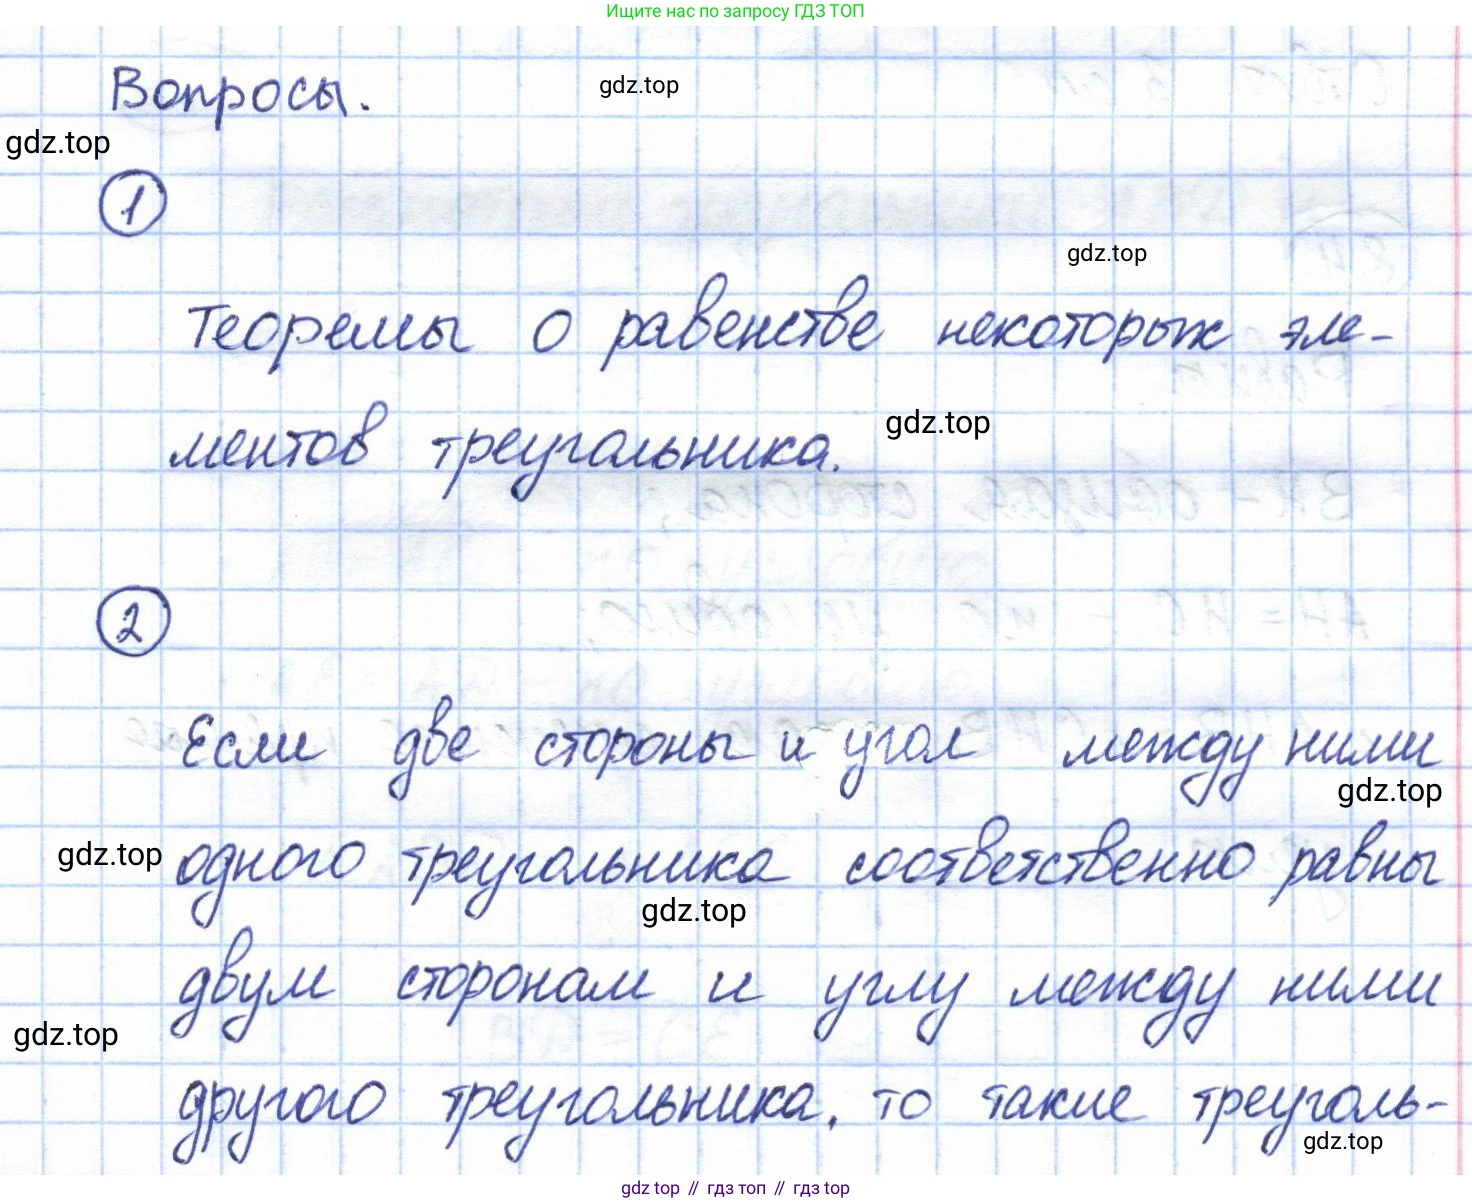 Ищите нас по запросу ГДЗ ТОП
Вопросы.
gdz.top
gdz.top
1
gdz.top
Теоремы о равенстве некоторых эле-
ментов треугольника.
gdz.top
2
Если две стороны и угол между ними
gdz.top
одного треугольника соответственно равны
gdz.top
gdz.top
двум сторонам и углу между ними
gdz.top
другого треугольника, то такие треуголь-
gdz.top
gdz top // гдз топ // гдз top